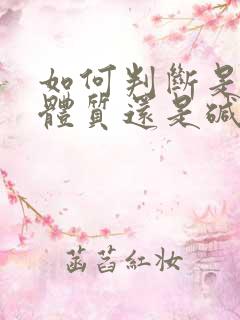 如何判斷是
體質還是鹹
菡萏紅妝